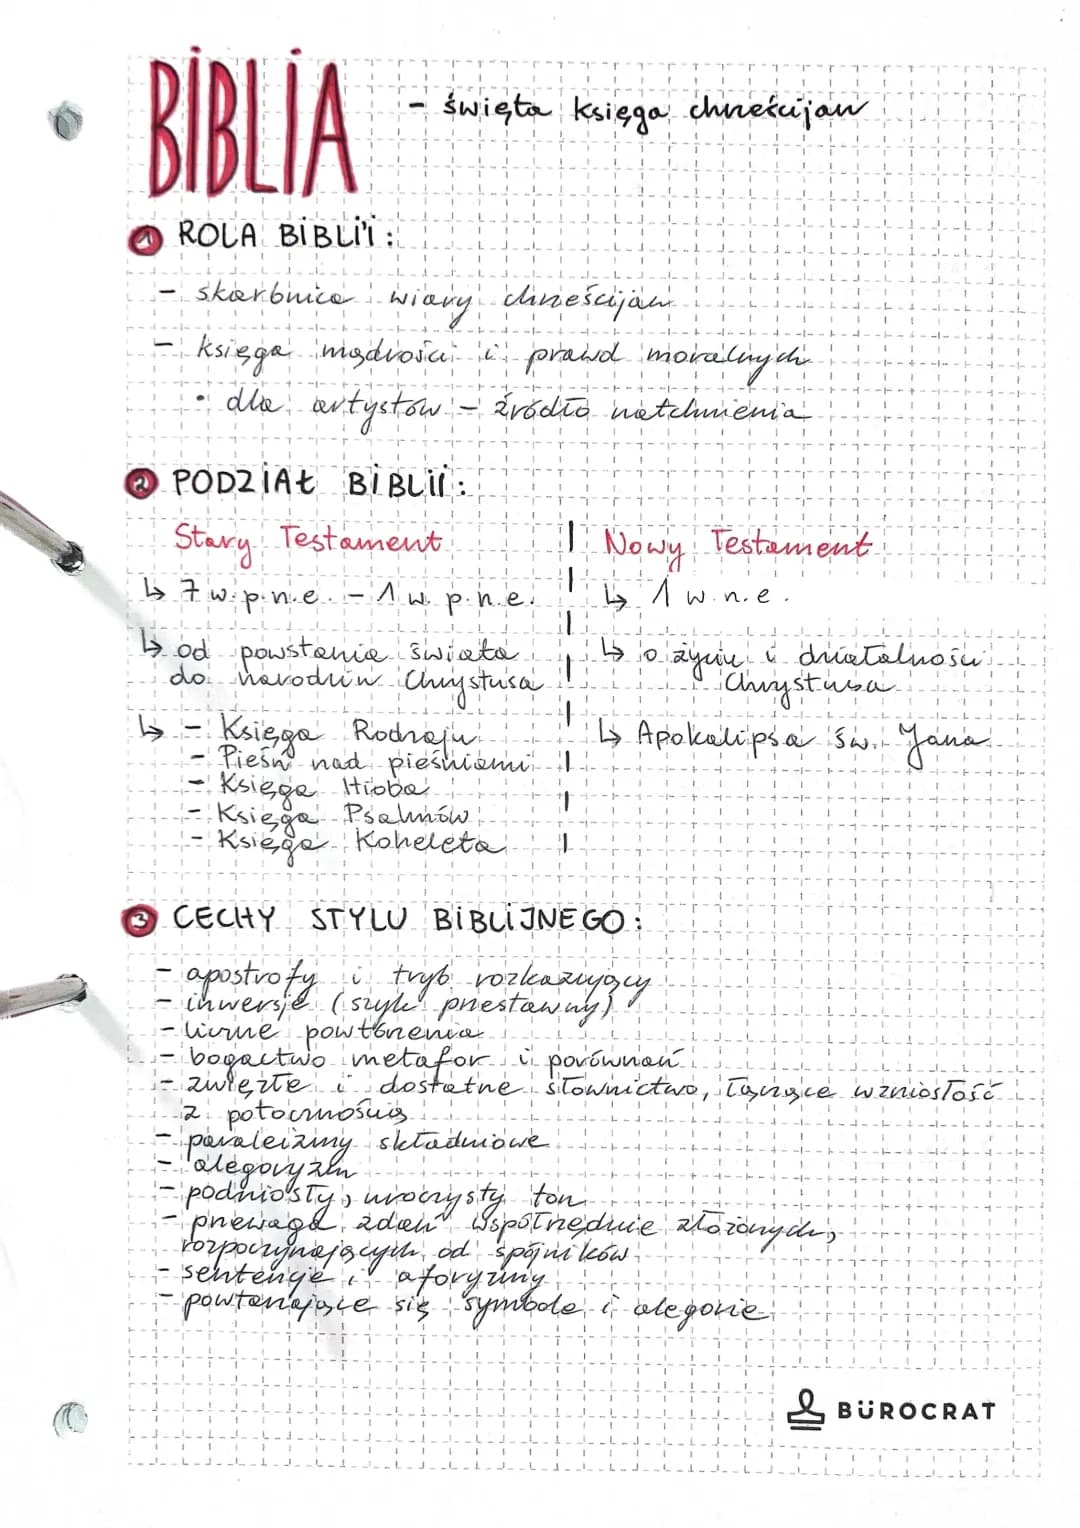 BIBLIA
- święta księga chrześcijan
1 ROLA BIBLII:
- skarbnica wiary chrześcijan
- księga mądrości i prawd moralnych
• dla artystów - źródło natchnienia
2 PODZIAŁ BIBLII:
Stary Testament
↳ 7 w. p.n.e. - 1 w. p.n.e.
↳ od powstania świata
do narodzin Chrystusa
↳ - Księga Rodzaju
- Pieśń nad pieśniami
- Księga Hioba
- Księga Psalmów
- Księga Koheleta
Nowy Testament
↳ 1 w. n.e.
↳ o życiu i działalności
Chrystusa
↳ Apokalipsa św. Jana
3 CECHY STYLU BIBLIJNEGO:
- apostrofy i tryb rozkazujący
- inwersje (szyk przestawny)
- liczne powtórzenia
- bogactwo metafor i porównań
- zwięzłe i dostatne słownictwo, łączące wzniosłość
z potocznością
- paraleizmy składniowe
- alegoryzm
- podniosły, uroczysty ton
- przewaga zdań współrzędnie złożonych,
rozpoczynających od spójników
- sentencje i aforyzmy
- powtarzające się symbole i alegorie
BÜROCRAT